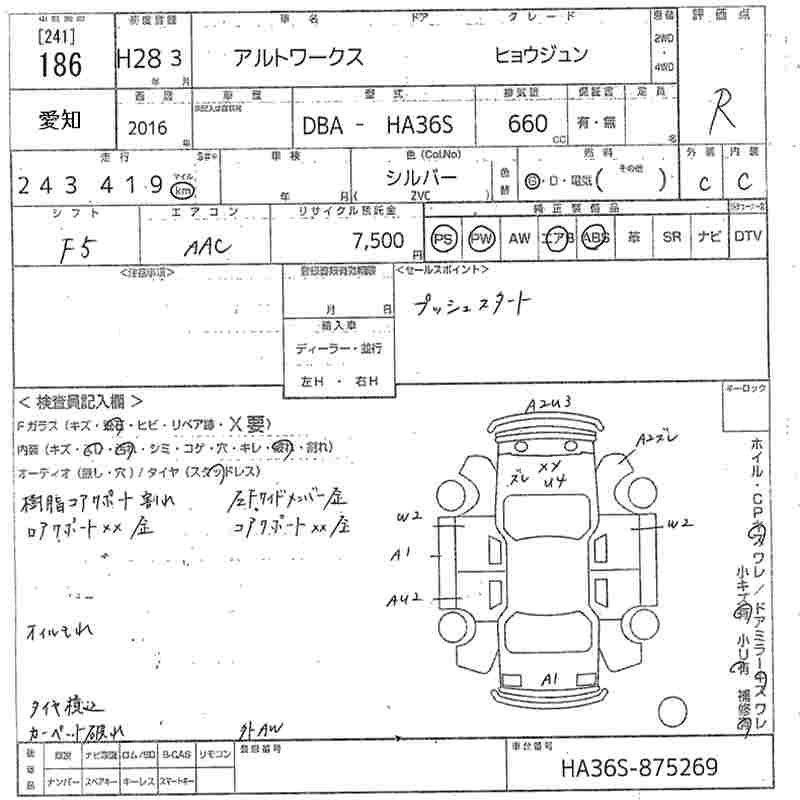 [241]
186
初度登録
H28 3
年 月
車名
アルトワークス
ドア
グレード
ヒョウジュン
2WD
・
4WD
評価点
R
愛知
西暦
2016
年
車歴
型式
DBA - HA36S
排気量
660
CC
保証書
有・無
定員
名
走行
243 419
マイル
km
S#※
車検
年 月
色(Col.No)
シルバー
( 2VC )
色替
燃料
G・D・電気( その他 )
外装
C
内装
C
シフト
F5
エアコン
AAC
リサイクル預託金
7,500
円
純正装備品
PS PW AW エアB ABS 革 SR ナビ DTV
<注意事項>
登録書類有効期限
月 日
輸入車
ディーラー・並行
左H ・ 右H
<セールスポイント>
プッシュスタート
< 検査員記入欄 >
Fガラス (キズ・飛石・ヒビ・リペア跡・X要)
内装 (キズ・・汚れ・シミ・コゲ・穴・キレ・破れ・割れ)
オーディオ (無し・穴) / タイヤ (スタッドレス)
キーロック
樹脂コアサポート 割れ
左ドサイドメンバー歪
ロアサポート xx 歪
コアサポート xx 歪
オイルもれ
タイヤ積込
カーペット破れ
外AW
A2U3
A2ズレ
ズレ
XY
U4
W2
W2
A1
AU2
A1
ホイル・CPキズワレ/ドアミラーキズワレ
小キズ有 小U有 補修有
後装品
ナビ
B-CAS
リモコン
ナンバー
スペアキー
キーレス
スマートキー
登録番号
車台番号
HA36S-875269